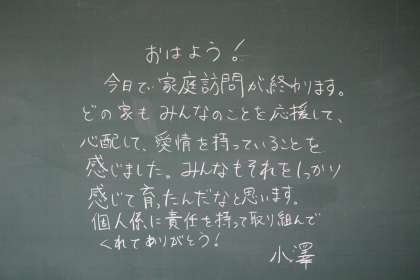 おはよう！
今日で家庭訪問が終わります。
どの家もみんなのことを応援して、
心配して、愛情を持っていることを
感じました。みんなもそれをしっかり
感じて育ったんだなと思います。
個人係に責任を持って取り組んで
くれてありがとう！
小澤